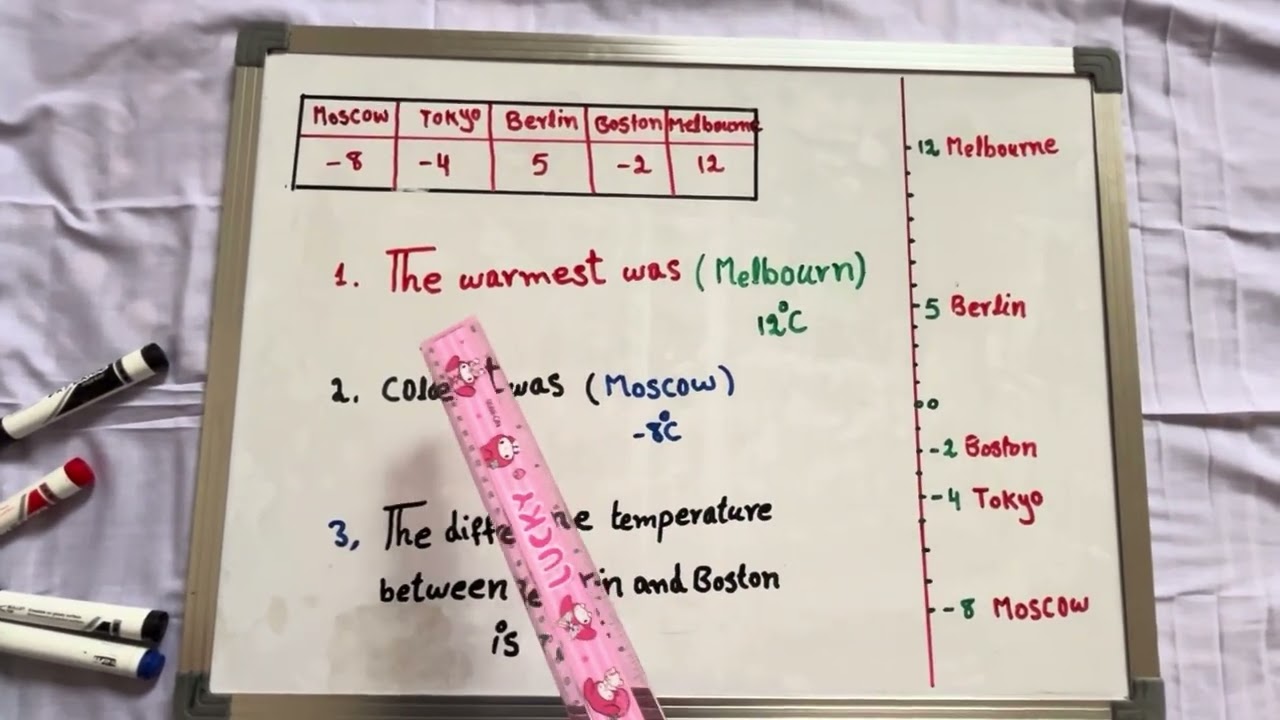 Moscow Tokyo Berlin Boston Melbourne
-8 -4 5 -2 12
1. The warmest was (Melbourn)
12°C
2. was (Moscow)
-8°C
3, The temperature
between and Boston
is
LUCKY
12 Melbourne
5 Berlin
0
-2 Boston
-4 Tokyo
-8 Moscow